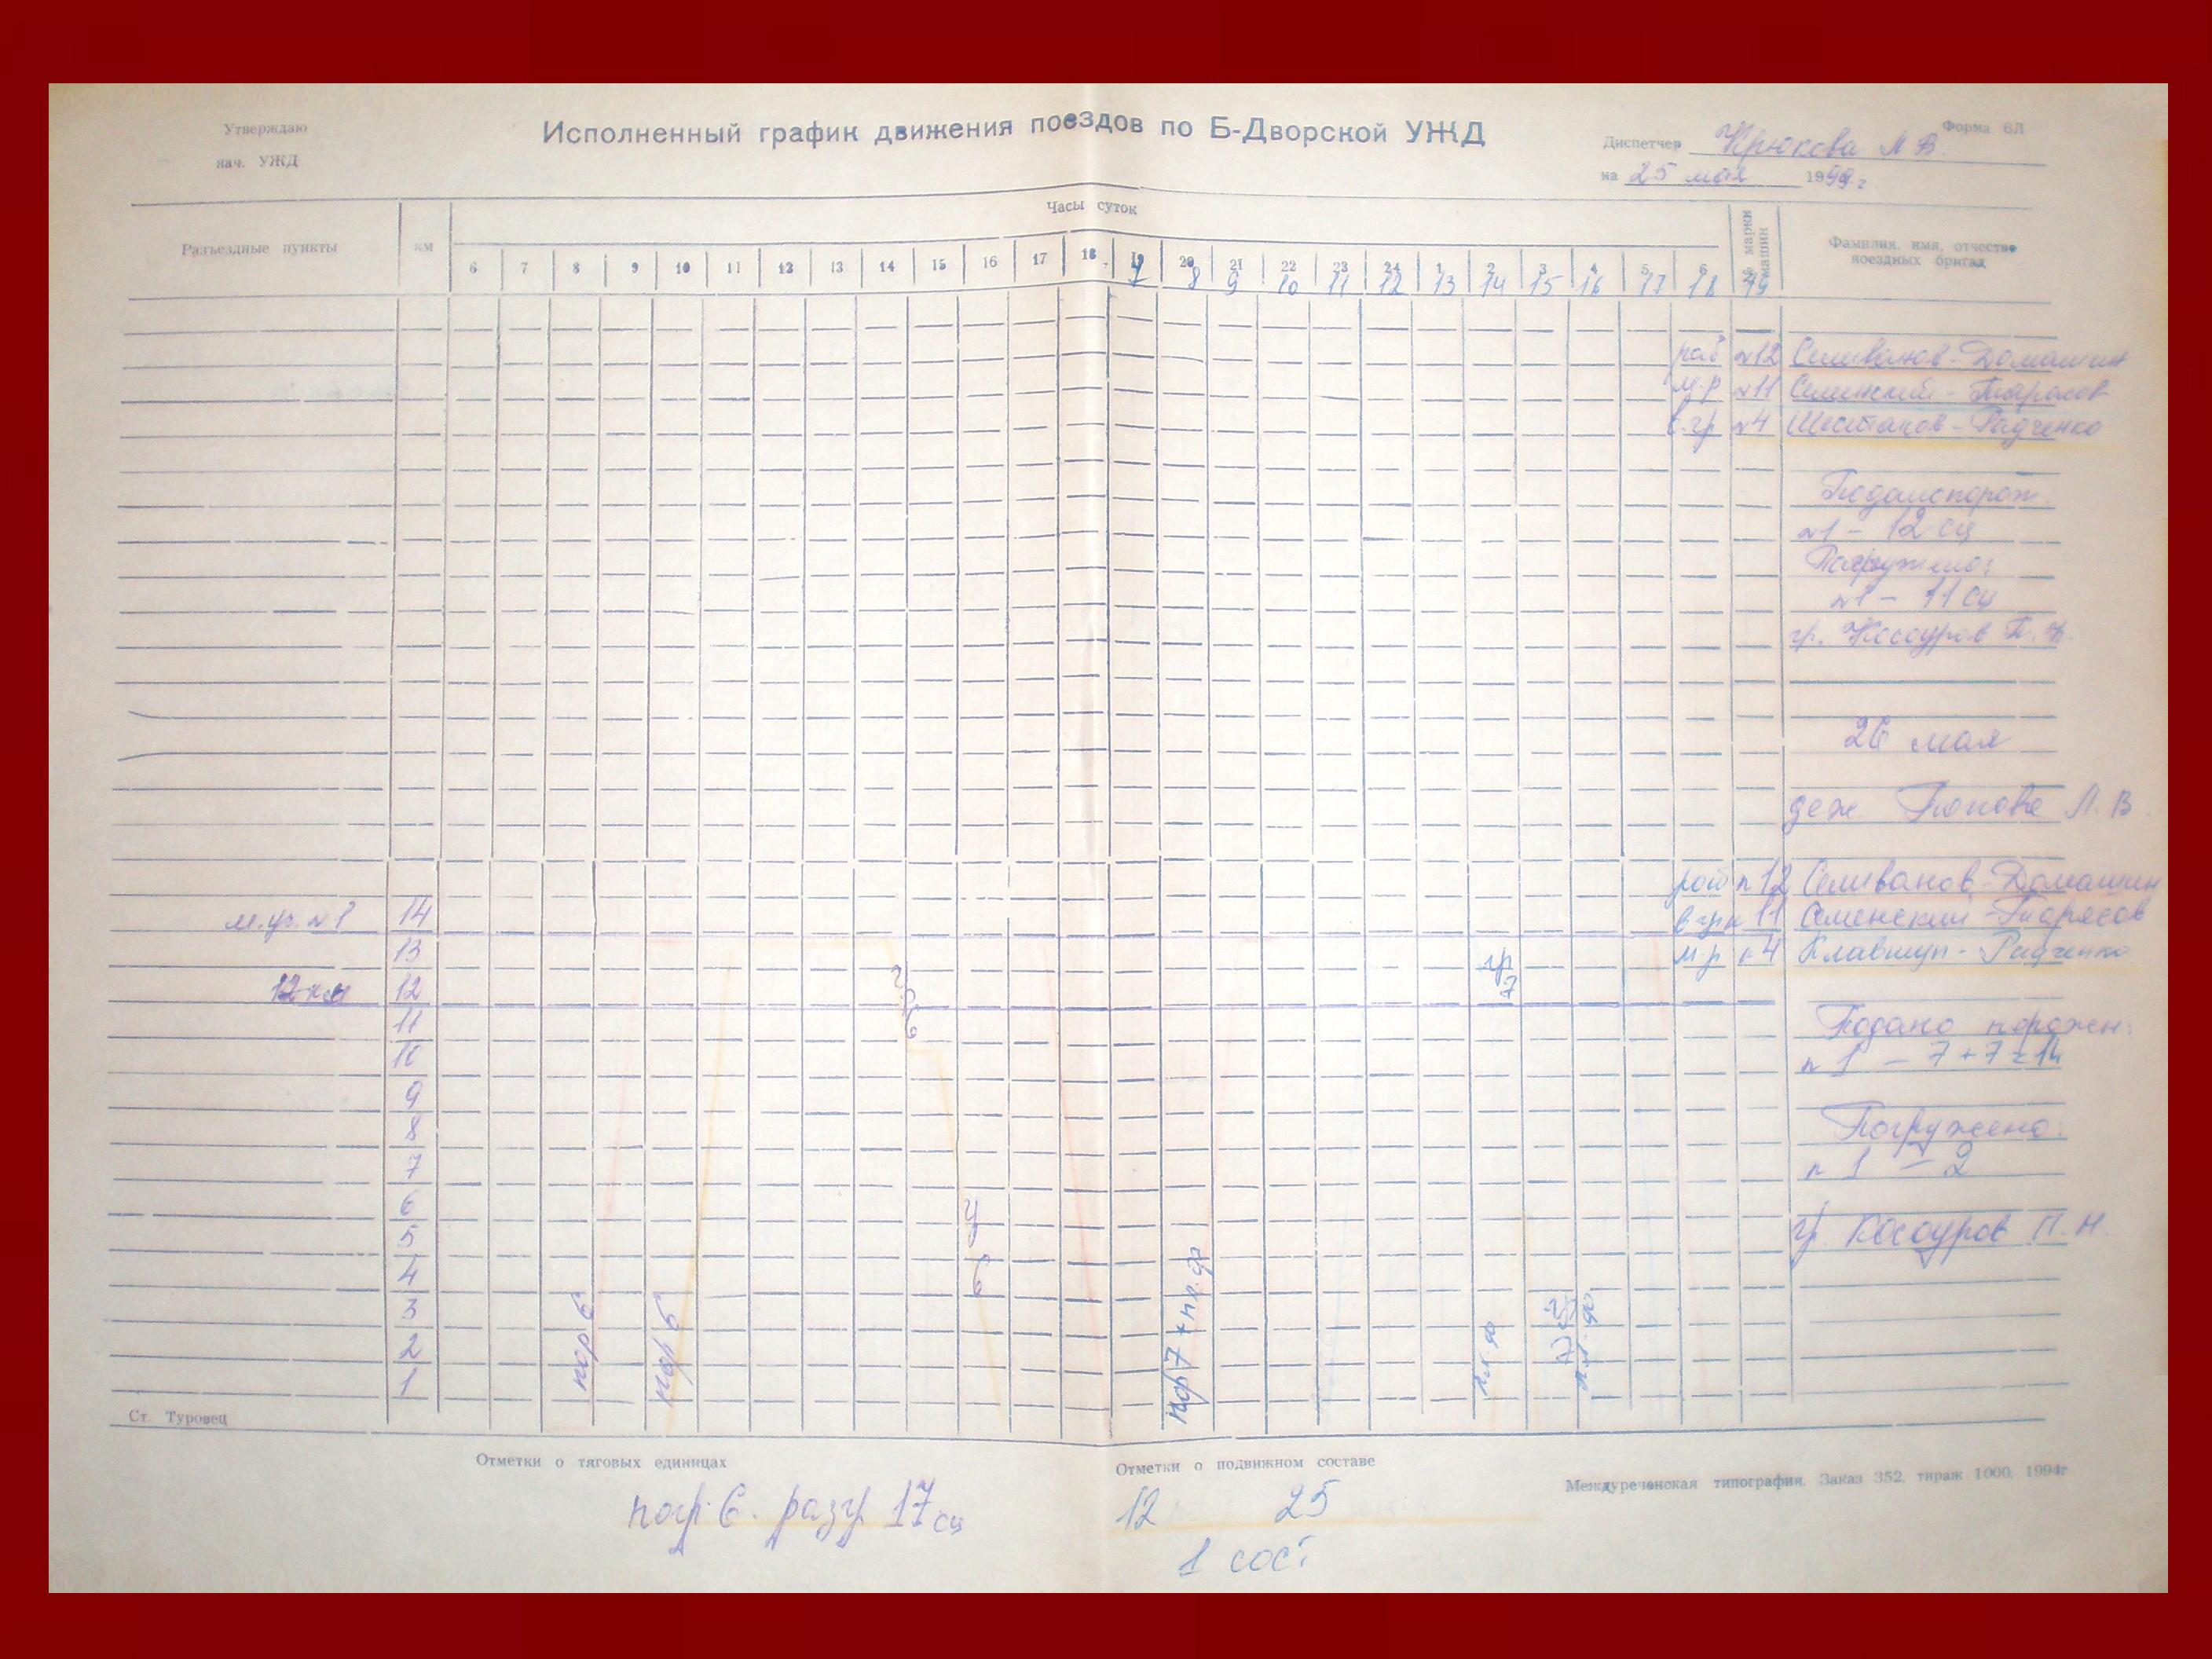 Утверждаю
нач. УЖД
Исполненный график движения поездов по Б-Дворской УЖД
Форма 6Л
Диспетчер Крюкова М В.
на 25 мая 1999 г
Разъездные пункты
км
Часы суток
6 7 8 9 10 11 12 13 14 15 16 17 18 19 20 21 22 23 24 1 2 3 4 5 6
7 8 9 10 11 12 13 14 15 16 17 18 19
марки машин
Фамилия, имя, отчество поездных бригад
раб №12 Селиванов-Домашин
м.р №11 Семенский-Тюрясов
в.гр №4 Шестаков-Радченко
Подано порож.
№1 - 12 сц
Погружено:
№1 - 11 сц
гр. Косоуров П. Н.
26 мая
деж. Попова Л. В
раб п 12 Селиванов-Домашин
м.уч. №1 14 в гр п 11 Семенский-
13 м.р п 4 - Радченко
гр 7
12 км 12
11 Подано порожн.
10 п 1 - 7+7=14
9
8 Погружено:
7 п 1 - 2
6
5 гр. Косоуров П. Н.
4
3
2
1
пор 6
пор 6
пор 7 + пл. др
пл. др
пл. др
Ст. Туровец
Отметки о тяговых единицах
Отметки о подвижном составе
Междуреченская типография. Заказ 352, тираж 1000, 1994г
погр. 6. разгр 17 сц
12 25
1 сост